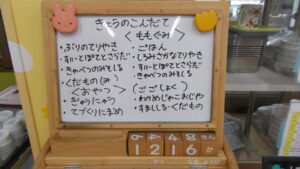 きょうのこんだて
＜ももぐみ＞
・ぶりのてりやき
・すいーとぽてとさらだ
・きゃべつのみそしる
・くだもの(み)
＜おやつ＞
・ぎゅうにゅう
・てづくりにまめ
・ごはん
・しろみさかなてりやき
・すいーとぽてとさらだ
・きゃべつのみそしる
(ごごしょく)
・わかめじゃこおじや
・すましじる・くだもの
12 16